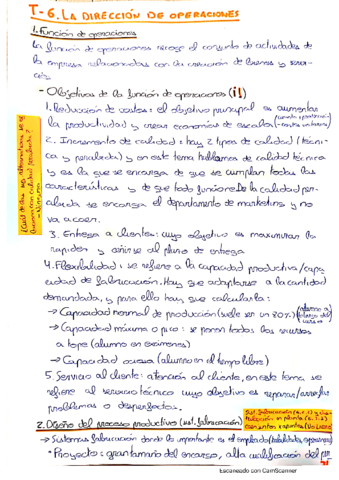 T-6. LA DIRECCIÓN DE OPERACIONES
1. Función de operaciones
La función de operaciones recoge el conjunto de actividades de
la empresa relacionadas con la creación de bienes y servi-
cios
- Objetivos de la función de operaciones (i!)
1. Reducción de costes: el objetivo principal es aumentar
la productividad y crear economías de escala
2. Incremento de calidad: hay 2 tipos de calidad (técni-
ca y percibida) y en este tema hablamos de calidad técnica
y es la que se encarga de que se cumplan todas las
características y de que todo funcione. De la calidad per-
cibida se encarga el departamento de marketing y no
va a caer.
3. Entrega a clientes: cuyo objetivo es maximizar la
rapidez y ceñirse al plazo de entrega
4. Flexibilidad: se refiere a la capacidad productiva/capa
cidad de fabricación. Hay que adaptarse a la cantidad
demandada, y para ello hay que calcular la:
→ Capacidad normal de producción (suele ser un 80%)
→ Capacidad máxima o pico: se ponen todos los recursos
a tope (alumno en exámenes)
→ Capacidad ociosa (alumno en el tiempo libre)
5. Servicio al cliente: atención al cliente, en este tema se
refiere al servicio técnico cuyo objetivo es reparar/arreglar
problemas o desperfectos.
2. Diseño del proceso productivo (sist. fabricación)
→ Sistemas fabricación donde lo importante es el empleado
· Proyecto: gran tamaño del encargo, alta cualificación del
Escaneado con CamScanner